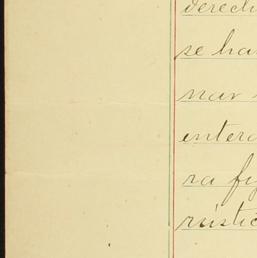 derech
se ha
nar
entera
ra fi
rústic